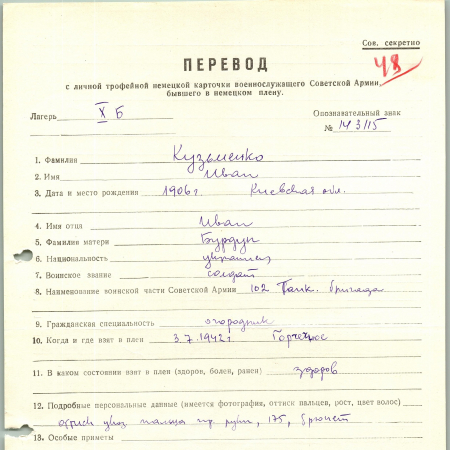 Сов. секретно
48
ПЕРЕВОД
с личной трофейной немецкой карточки военнослужащего Советской Армии,
бывшего в немецком плену.
Лагерь X Б
Опознавательный знак
№ 14315
1. Фамилия Кузьменко
2. Имя Иван
3. Дата и место рождения 1906 г. Киевская обл.
4. Имя отца Иван
5. Фамилия матери Бурдун
6. Национальность украинец
7. Воинское звание солдат
8. Наименование воинской части Советской Армии 102 Танк. бригада
9. Гражданская специальность огородник
10. Когда и где взят в плен 3.7.1942 г.
11. В каком состоянии взят в плен (здоров, болен, ранен) здоров
12. Подробные персональные данные (имеется фотография, оттиск пальцев, рост, цвет волос)
оттиск указ. пальца пр. руки, 175, брюнет
13. Особые приметы